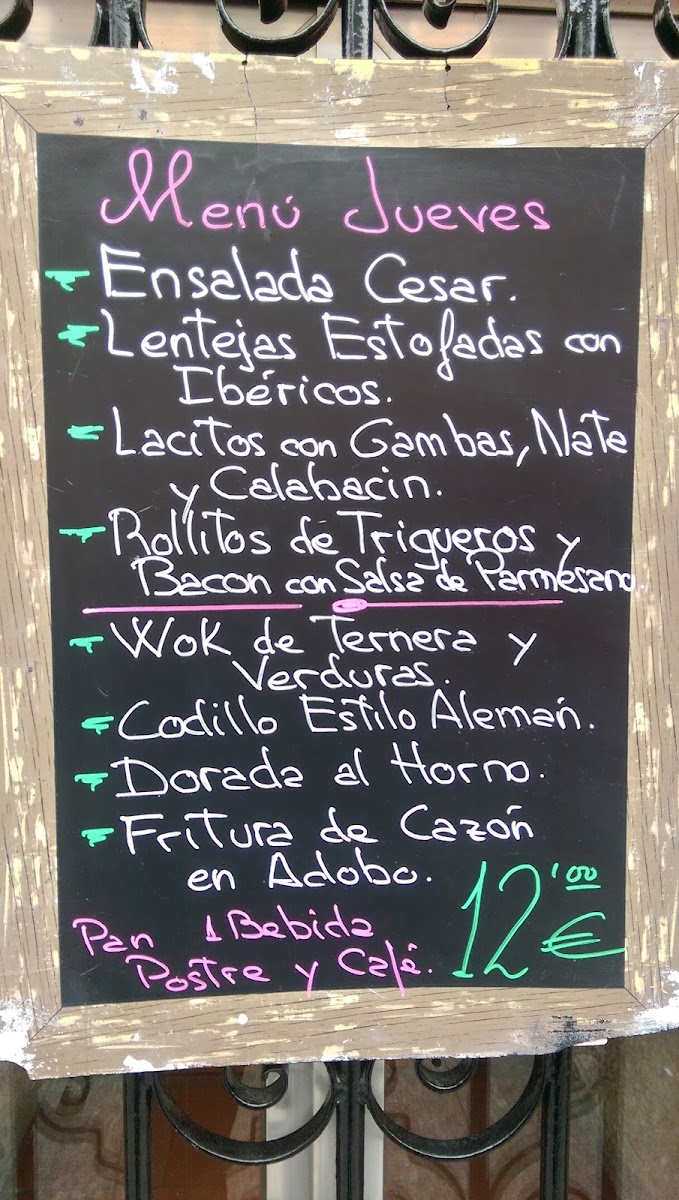 Menú Jueves
Ensalada Cesar.
Lentejas Estofadas con
Ibéricos.
Lacitos con Gambas, Nata
y Calabacin.
Rollitos de Trigueros y
Bacon con Salsa de Parmesano.
Wok de Ternera y
Verduras.
Codillo Estilo Alemán.
Dorada al Horno.
Fritura de Cazón
en Adobo.
Pan 1 Bebida
Postre y Café.
12'00 €